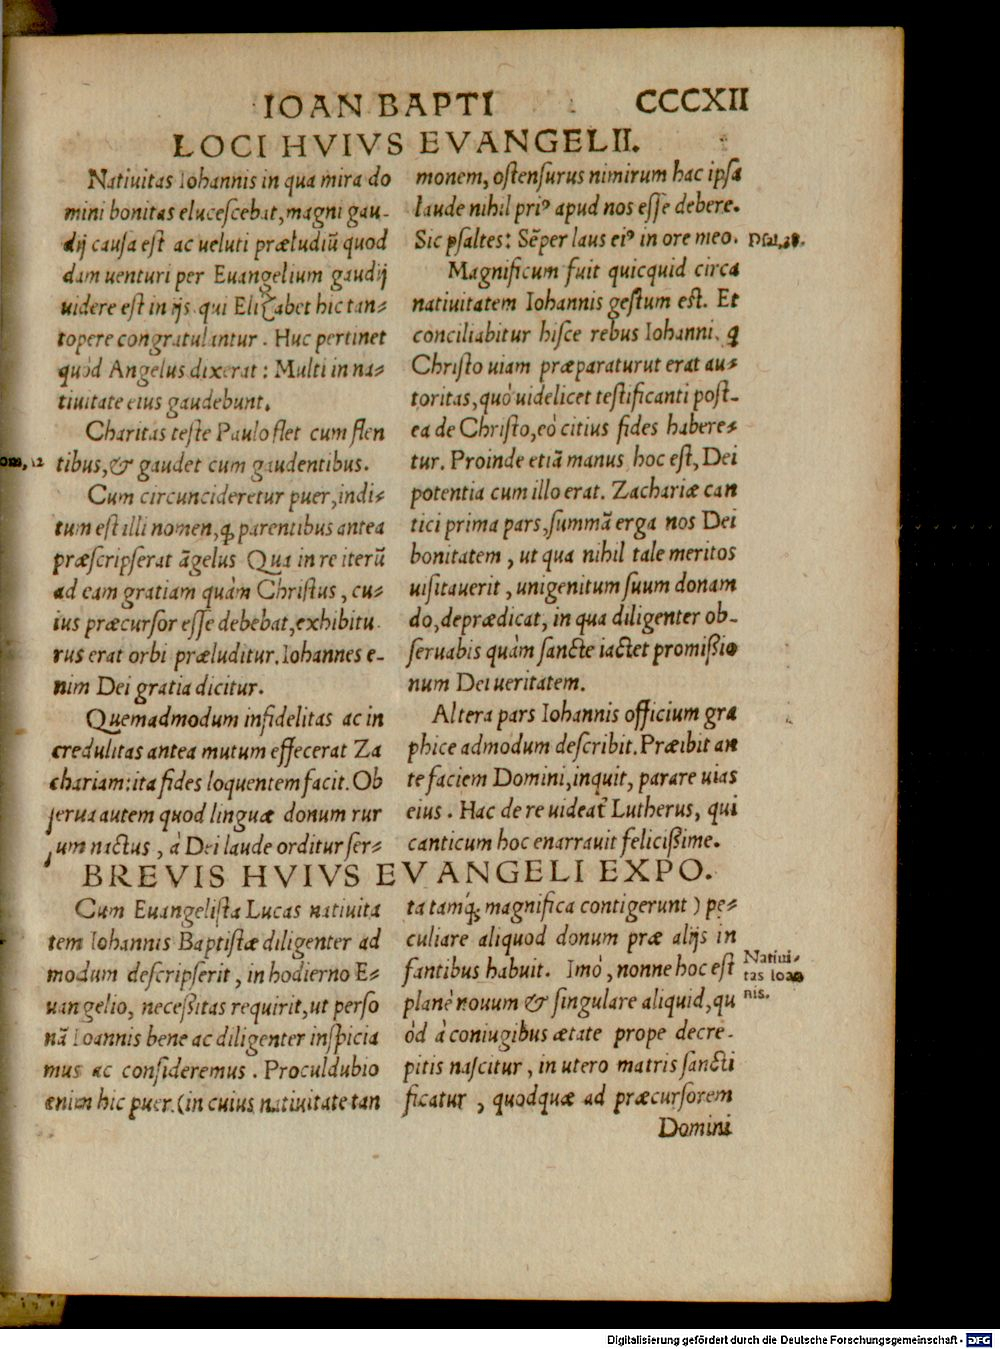 IOAN BAPTI CCCXII
LOCI HVIVS EVANGELII.
Natiuitas Iohannis in qua mira do
mini bonitas elucescebat, magni gau-
dij causa est ac ueluti præludiũ quod
dam uenturi per Euangelium gaudij
uidere est in ijs qui Elizabet hic tan-
topere congratulantur. Huc pertinet
quòd Angelus dixerat: Multi in na-
tiuitate eius gaudebunt.
Charitas teste Paulo flet cum flen
tibus, & gaudet cum gaudentibus.
Cum circuncideretur puer, indi-
tum est illi nomen, ꝙ parentibus antea
præscripserat ãgelus Qua in re iterũ
ad eam gratiam quàm Christus, cu-
ius præcursor esse debebat, exhibitu
rus erat orbi præluditur. Iohannes e-
nim Dei gratia dicitur.
Quemadmodum infidelitas ac in
credulitas antea mutum effecerat Za
chariam: ita fides loquentem facit. Ob
serua autem quod linguæ donum rur
sum nactus, à Dei laude orditur ser-
monem, ostensurus nimirum hac ipsa
laude nihil priꝰ apud nos esse debere.
Sic psaltes: Sẽper laus eiꝰ in ore meo.
Magnificum fuit quicquid circa
natiuitatem Iohannis gestum est. Et
conciliabitur hisce rebus Iohanni, ꝗ
Christo uiam præparaturut erat au-
toritas, quò uidelicet testificanti post-
ea de Christo, eò citius fides habere-
tur. Proinde etiã manus hoc est, Dei
potentia cum illo erat. Zachariæ can
tici prima pars, summã erga nos Dei
bonitatem, ut qua nihil tale meritos
uisitauerit, unigenitum suum donam
do, deprædicat, in qua diligenter ob-
seruabis quàm sancte iactet promissio
num Dei ueritatem.
Altera pars Iohannis officium gra
phice admodum describit. Præibit an
te faciem Domini, inquit, parare uias
eius. Hac de re uideat̃ Lutherus, qui
canticum hoc enarrauit felicissime.
om, 12
BREVIS HVIVS EVANGELI EXPO.
Cum Euangelista Lucas natiuita
tem Iohannis Baptistæ diligenter ad
modum descripserit, in hodierno E-
uangelio, necessitas requirit, ut perso
nã Ioannis bene ac diligenter inspicia
mus ac consideremus. Proculdubio
ænim hic puer. (in cuius natiuitate tan
ta tamq́; magnifica contigerunt) pe-
culiare aliquod donum præ alijs in
fantibus habuit. Imò, nonne hoc est
planè nouum & singulare aliquid, qu
òd à coniugibus ætate prope decre-
pitis nascitur, in utero matris sancti
ficatur, quodquæ ad præcursorem
Domini
Natiui-
tas Ioan
nis.
Digitalisierung gefördert durch die Deutsche Forschungsgemeinschaft - DFG